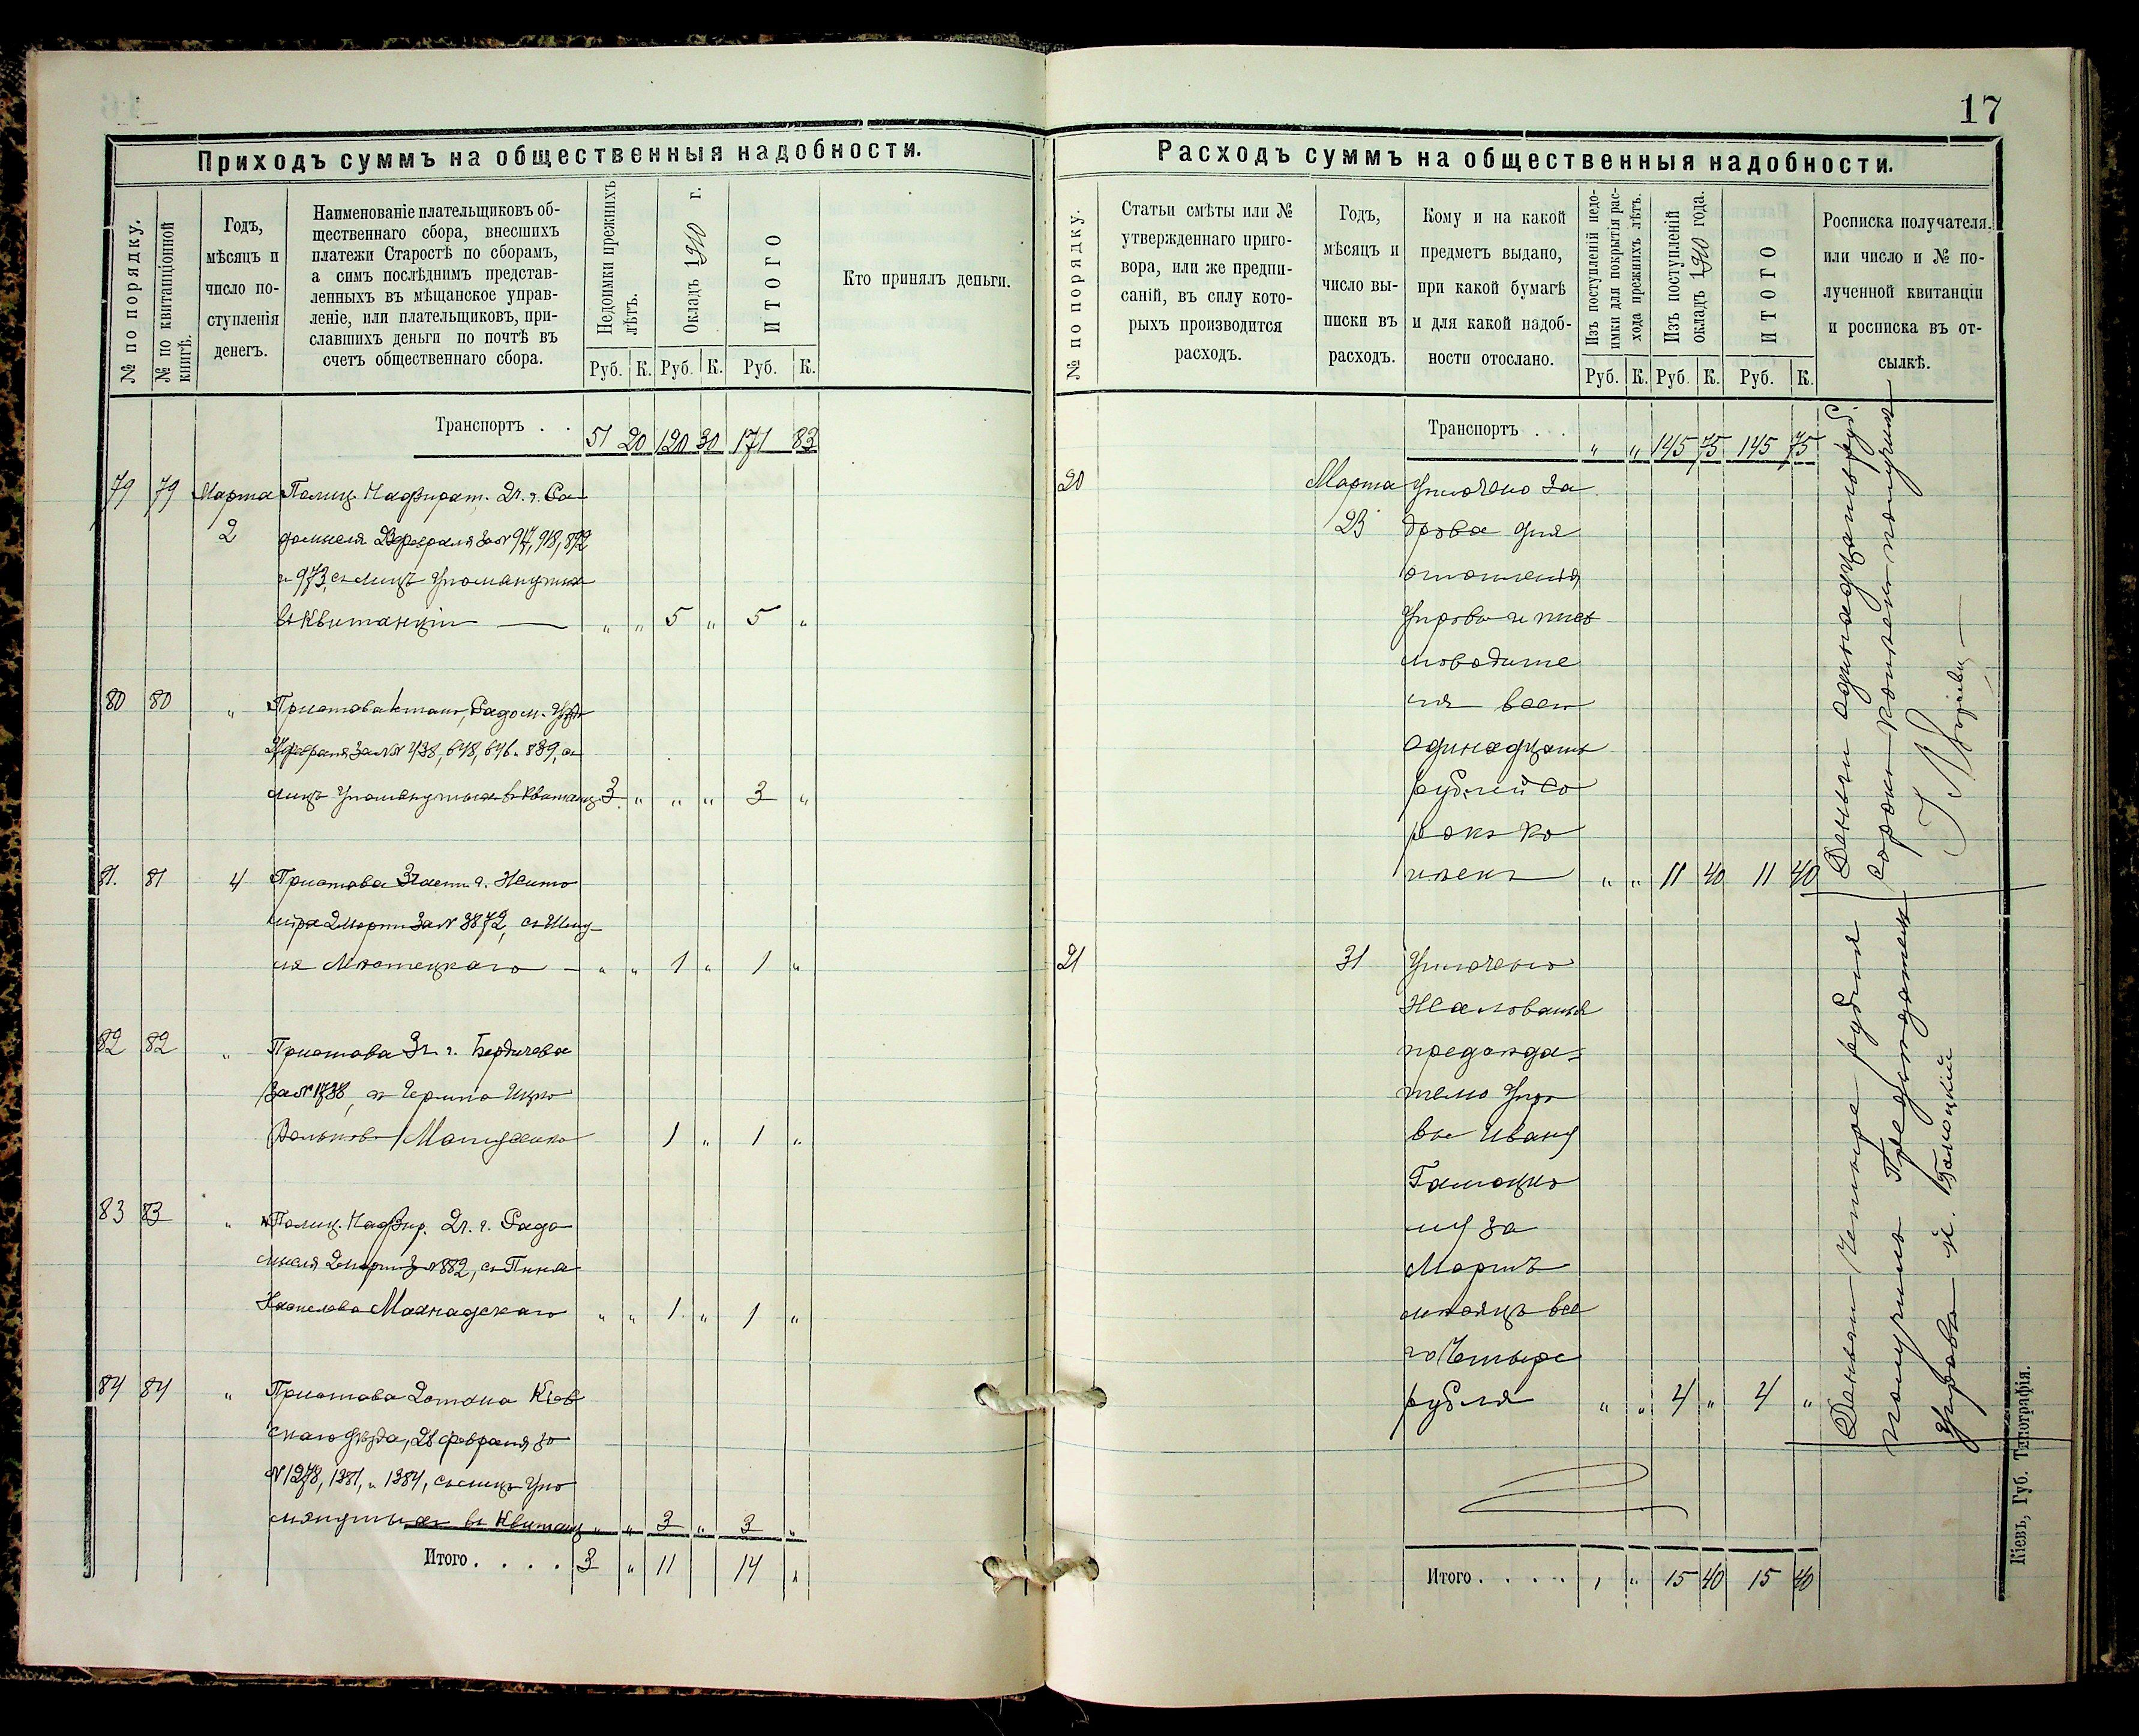 17
Приходъ суммъ на общественныя надобности.
№ по порядку.
№ по квитанціонной
книгѣ.
Годъ,
мѣсяцъ и
число по-
ступленія
денегъ.
Наименованіе плательщиковъ об-
щественнаго сбора, внесшихъ
платежи Старостѣ по сборамъ,
а симъ послѣднимъ представ-
ленныхъ въ мѣщанское управ-
леніе, или плательщиковъ, при-
славшихъ деньги по почтѣ въ
счетъ общественнаго сбора.
Недоимки прежнихъ
лѣтъ.
Окладъ 1910 г.
ИТОГО
Кто принялъ деньги.
Руб. К. Руб. К. Руб. К.
Транспортъ . . 51 20 120 30 171 83
79 79 Марта Полиц. Надзират. 2 ч. г. Ра-
2 домысля за № 917, 918, 892
и 973, съ лицъ упомянутыхъ
въ Квитанціи — " " 5 " 5 "
80 80 " Пристава стана, Радом. уѣз
февраля за №№ 438, 648, 646 и 839, съ
лицъ упомянутыхъ въ Квитанц. 3 " " " 3 "
81. 81 4 Пристава 3 част. г. Жито
мира 2 Марта за № 3872, съ
" " 1 " 1 "
82 82 " Пристава 3 ч. г. Бердичева
за № 1738, съ
1 " 1 "
83 83 " Полиц. Надзир. 2 ч. г. Радо
мысля 2 Марта з № 882, съ
" " 1 " 1 "
84 84 " Пристава 2 стана Кіев
скаго уѣзда, 28 февраля за
№ 1278, 1381, и 1384, съ лицъ упо
мянутыхъ въ Квитанц " " 3 " 3 "
Итого . . . . 3 " 11 14 "
Расходъ суммъ на общественныя надобности.
№ по порядку.
Статьи смѣты или №
утвержденнаго приго-
вора, или же предпи-
саній, въ силу кото-
рыхъ производится
расходъ.
Годъ,
мѣсяцъ и
число вы-
писки въ
расходъ.
Кому и на какой
предметъ выдано,
при какой бумагѣ
и для какой надоб-
ности отослано.
Изъ поступленій недо-
имки для покрытія рас-
хода прежнихъ лѣтъ.
Изъ поступленій
окладъ 1910 года.
ИТОГО
Росписка получателя.
или число и № по-
лученной квитанціи
и росписка въ от-
сылкѣ.
Руб. К. Руб. К. Руб. К.
Транспортъ . . " " 145 75 145 75
20 Марта Уплочено за
23 дрова для
отопленія
Управы и пись
моводите
ля всего
одинадцать
рублей со
рокъ ко
пѣекъ " " 11 40 11 40
Деньги одинадцать руб.
сорокъ копѣекъ получилъ
21 31 Уплочено
Жалованья
председа-
телю Упра
вы Ивану
Галецко
му за
Мартъ
мѣсяцъ все
го Четыре
рубля " " 4 " 4 "
Деньги Четыре рубля
получилъ Председатель
Управы И.
Итого . . . . " " 15 40 15 40
Кіевъ, Губ. Типографія.